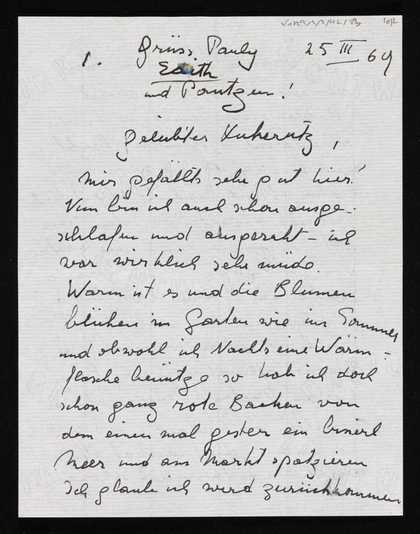 1. Grüss Pauly 25 III 69
Edith
und Pontzen!
geliebter
mir gefällts sehr gut hier!
Nun bin ich auch schon ausge-
schlafen und ausgeruht - ich
war wirklich sehr müde.
Warm ist es und die Blumen
blühen im Garten wie im Sommer
und obwohl ich Nachts eine Wärm-
flasche benütze so hab ich doch
schon ganz rote Backen von
dem einen mal gestern ein bisserl
Meer und am Markt spatzieren
Ich glaube ich werd zurückkommen